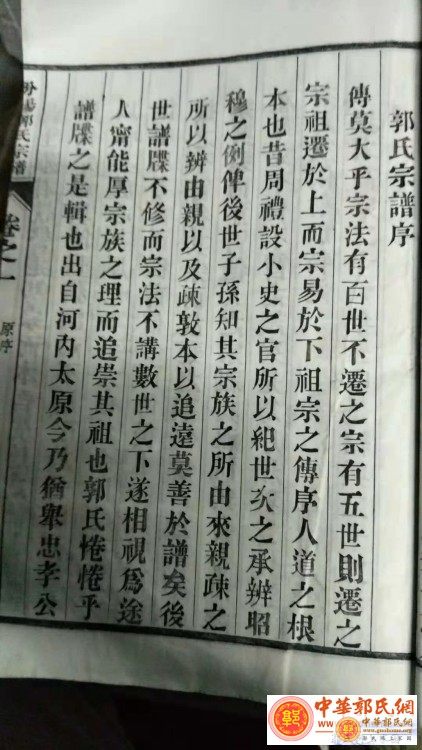 郭氏宗譜序
傳莫大乎宗法有百世不遷之宗有五世則遷之
宗祖遷於上而宗易於下祖宗之傳序人道之根
本也昔周禮設小史之官所以紀世次之承辨昭
穆之例俾後世子孫知其宗族之所由來親疎之
所以辨由親以及疎敦本以追遠莫善於譜矣後
世譜牒不修而宗法不講數世之下遂相視為途
人甯能厚宗族之理而追崇其祖也郭氏惓惓乎
譜牒之是輯也出自河內太原今乃猶舉忠孝公
汾陽郭氏宗譜
卷之一
原序
中華郭氏網
中華郭氏網
www.guohome.org